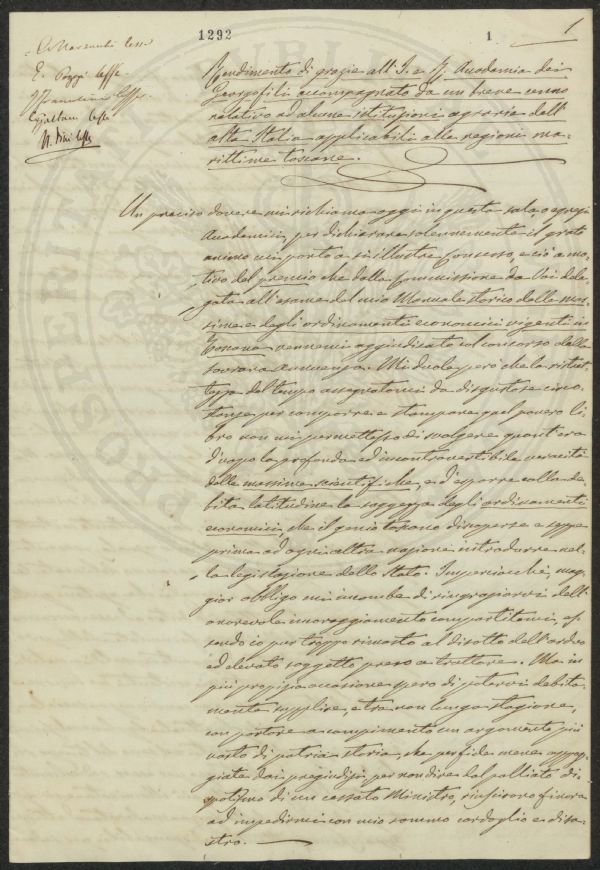 1292
1
1
C. Marzucchi lesse
E. Poggi lesse
lesse
lesse
lesse
Rendimento di grazie all'I. e R. Accademia dei
Georgofili accompagnato da un breve cenno
relativo ad alcune istituzioni agrarie dell'
alta Italia applicabili alle regioni ma-
rittime toscane.
Un preciso dovere mi richiama oggi in questa sala o egregi
Accademici, per dichiarare solennemente il grato
animo mi porto a sì illustre Consesso, e ciò a mo-
tivo del premio che dalla Commissione da Voi dele-
gata all'esame del mio Manuale storico delle mas-
sime e degli ordinamenti economici vigenti in
Toscana vennemi aggiudicato sul concorso dalla
sovrana annuenza. Mi duole però che la ristret-
tezza del tempo assegnatomi da disgustose circo-
stanze per comporre e stampare quel povero li-
bro non mi permettesse di svolgere quant'era
d'uopo la profonda ed incontrovertibile veracità
delle massime scientifiche, e d'esporre colla de-
bita latitudine la saggezza degli ordinamenti
economici, che il genio toscano discoperse e seppe
prima ad ogni altra nazione introdurre nel-
la legislazione dello Stato. Imperciocchè, mag-
gior obbligo mi incombe di ringraziarvi dell'
onorevole incoraggiamento compartitomi, es-
sendo io pur troppo rimasto al disotto dell'arduo
ed elevato soggetto preso a trattare. Ma in
più propizia occasione spero di potervi debita-
mente supplire, e tra non lunga stagione,
con portare a compimento un argomento più
vasto di patria storia, che perfide mene appog-
giate dai pregiudizi, per non dire dal palliato di-
spotismo di un cessato Ministro, riuscirono finora
ad impedirmi con mio sommo cordoglio e disa-
stro.
PROSPERITATI PUBLICAE